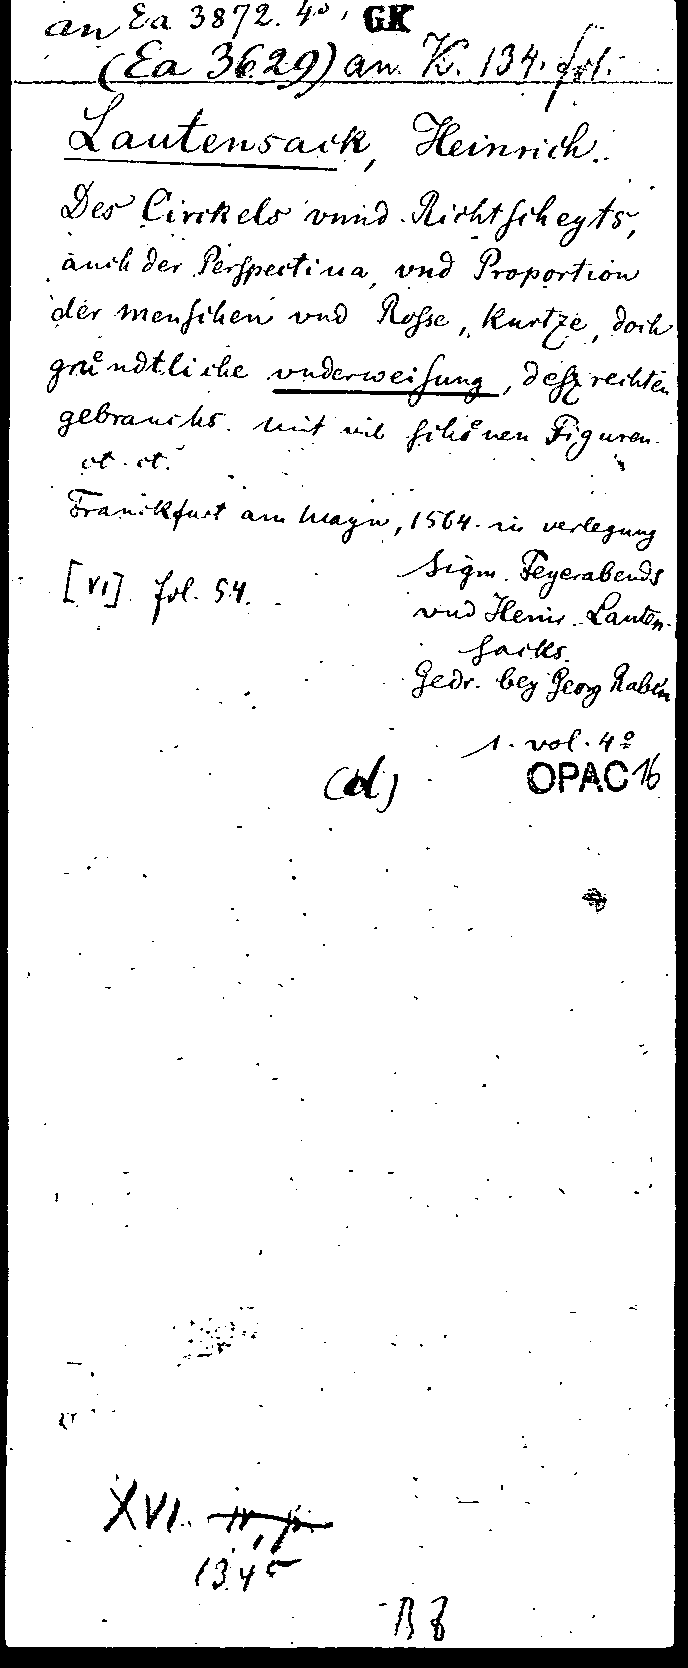 an Ea 3872. 4°, GK
(Ea 3629) an. K. 134. fol.
Lautensack, Heinrich.
Des Circkels vnnd Richtscheyts,
auch der Perspectiua, vnd Proportion
der menschen vnd Rosse, kurtze, doch
gruͦndtliche vnderweisung, desz rechten
gebrauchs. Mit vil schoͤnen Figuren.
et. ct.
Franckfurt am Mayn, 1564. in verlegung
Sigm. Feyerabends
vnd Heinr. Lauten-
sacks.
Gedr. bey Georg Raben
[VI] fol. 54.
1. vol. 4°
(d)
OPAC 16
XVI.
1345